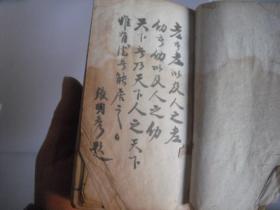 老吾老以及人之老
幼吾幼以及人之幼
天下者乃天下人之天下
惟有德者能居之
張明彥題